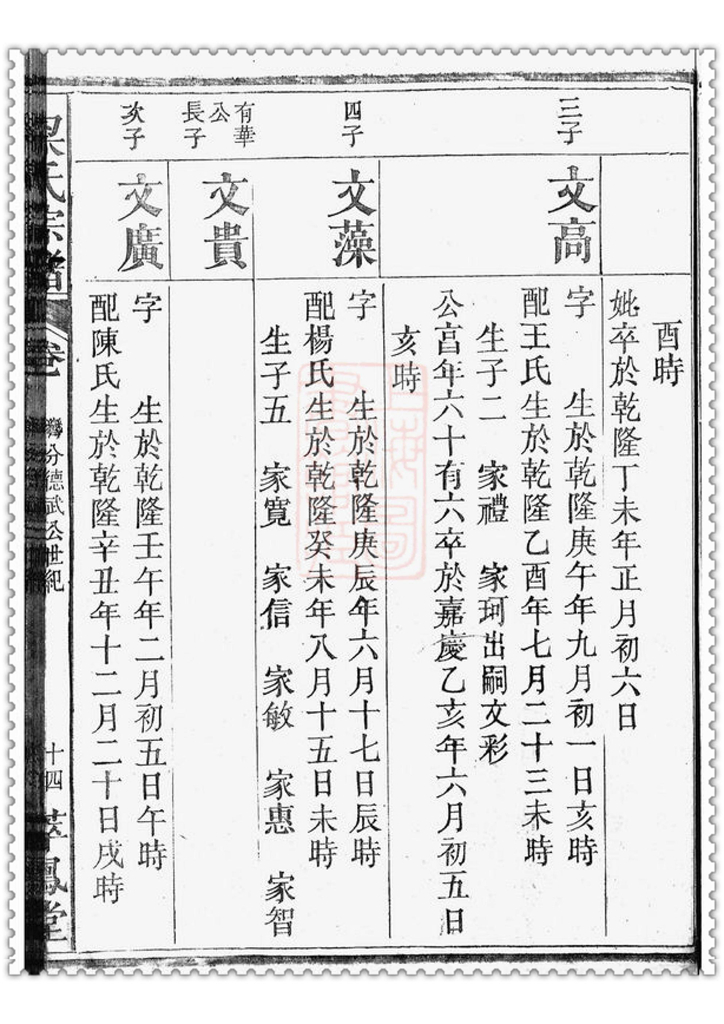 酉時
妣卒於乾隆丁未年正月初六日
三子
文高
字 生於乾隆庚午年九月初一日亥時
配王氏生於乾隆乙酉年七月二十三未時
生子二 家禮 家珂出嗣文彩
公享年六十有六卒於嘉慶乙亥年六月初五日
亥時
四子
文藻
字 生於乾隆庚辰年六月十七日辰時
配楊氏生於乾隆癸未年八月十五日未時
生子五 家寬 家信 家敏 家惠 家智
有華
公
長子
文貴
次子
文廣
字 生於乾隆壬午年二月初五日午時
配陳氏生於乾隆辛丑年十二月二十日戌時
氏宗譜
卷
分德武公世紀
十四
鳳堂